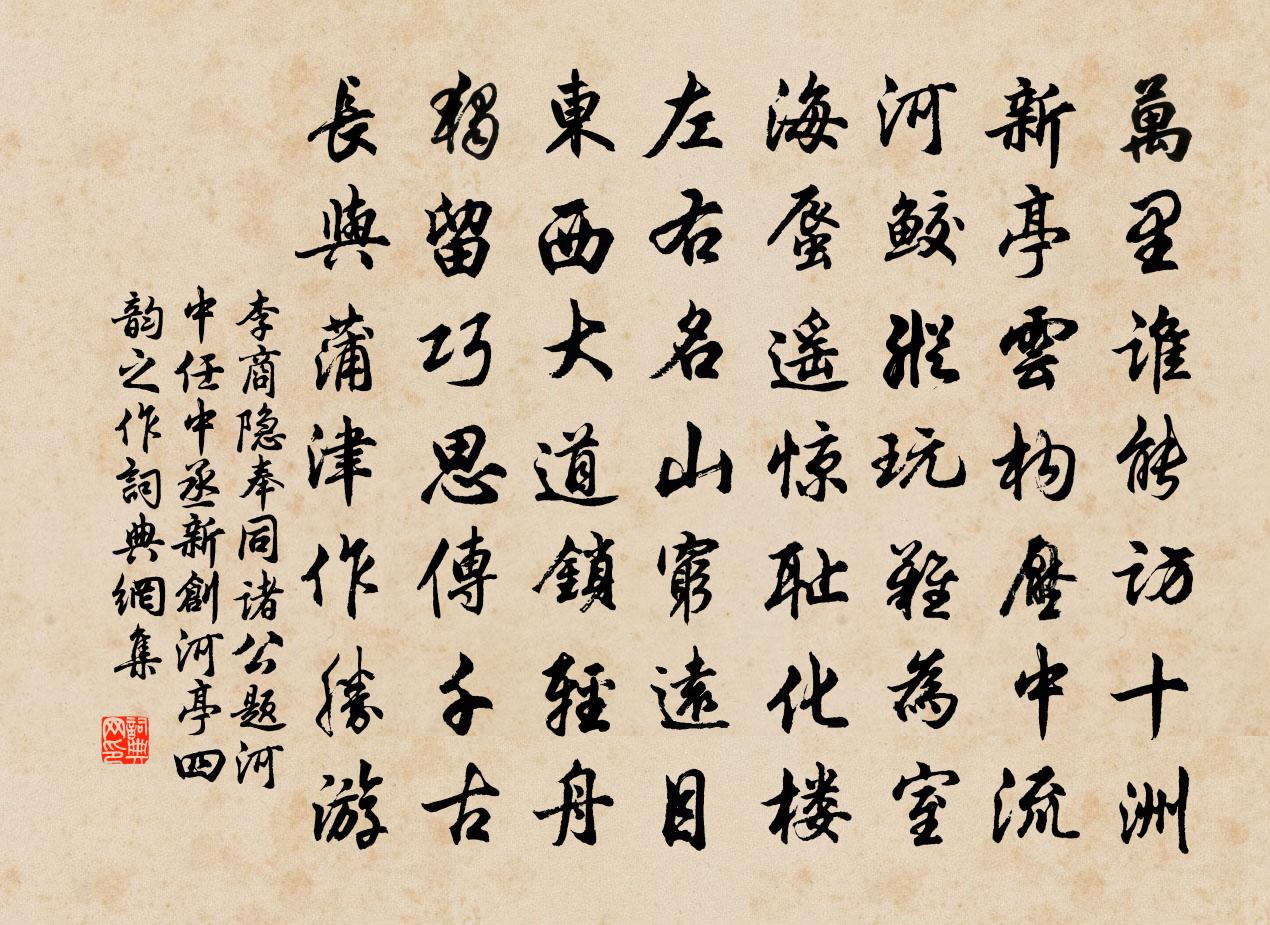 萬里誰能訪十洲
新亭雲构壓中流
河鮫縱玩難為室
海蜃遥惊耻化楼
左右名山窮遠目
東西大道鎖輕舟
獨留巧思傳千古
長與蒲津作勝游
李商隐奉同诸公题河
中任中丞新創河亭四
韵之作詞典網集
詞典网印